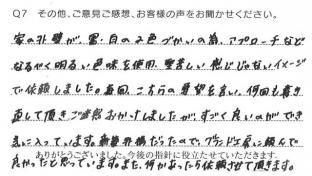 Q7 その他、ご意見ご感想、お客様の声をお聞かせください。
家の外壁が、黒・白のみ色づかいの為、アプローチなど
なるべく明るい色味を使用、堅苦しい感じじゃないイメージ
で依頼しました。毎回、こちらの要望を言い、何回も書き
直して頂きご迷惑おかけしましたが、すごく良いのができ
気に入っています。新築外構だったのでグランド工房に頼んで
良かったと思っています。また、何かあったら依頼させて頂きます。
ありがとうございました。今後の指針に役立たせていただきます。